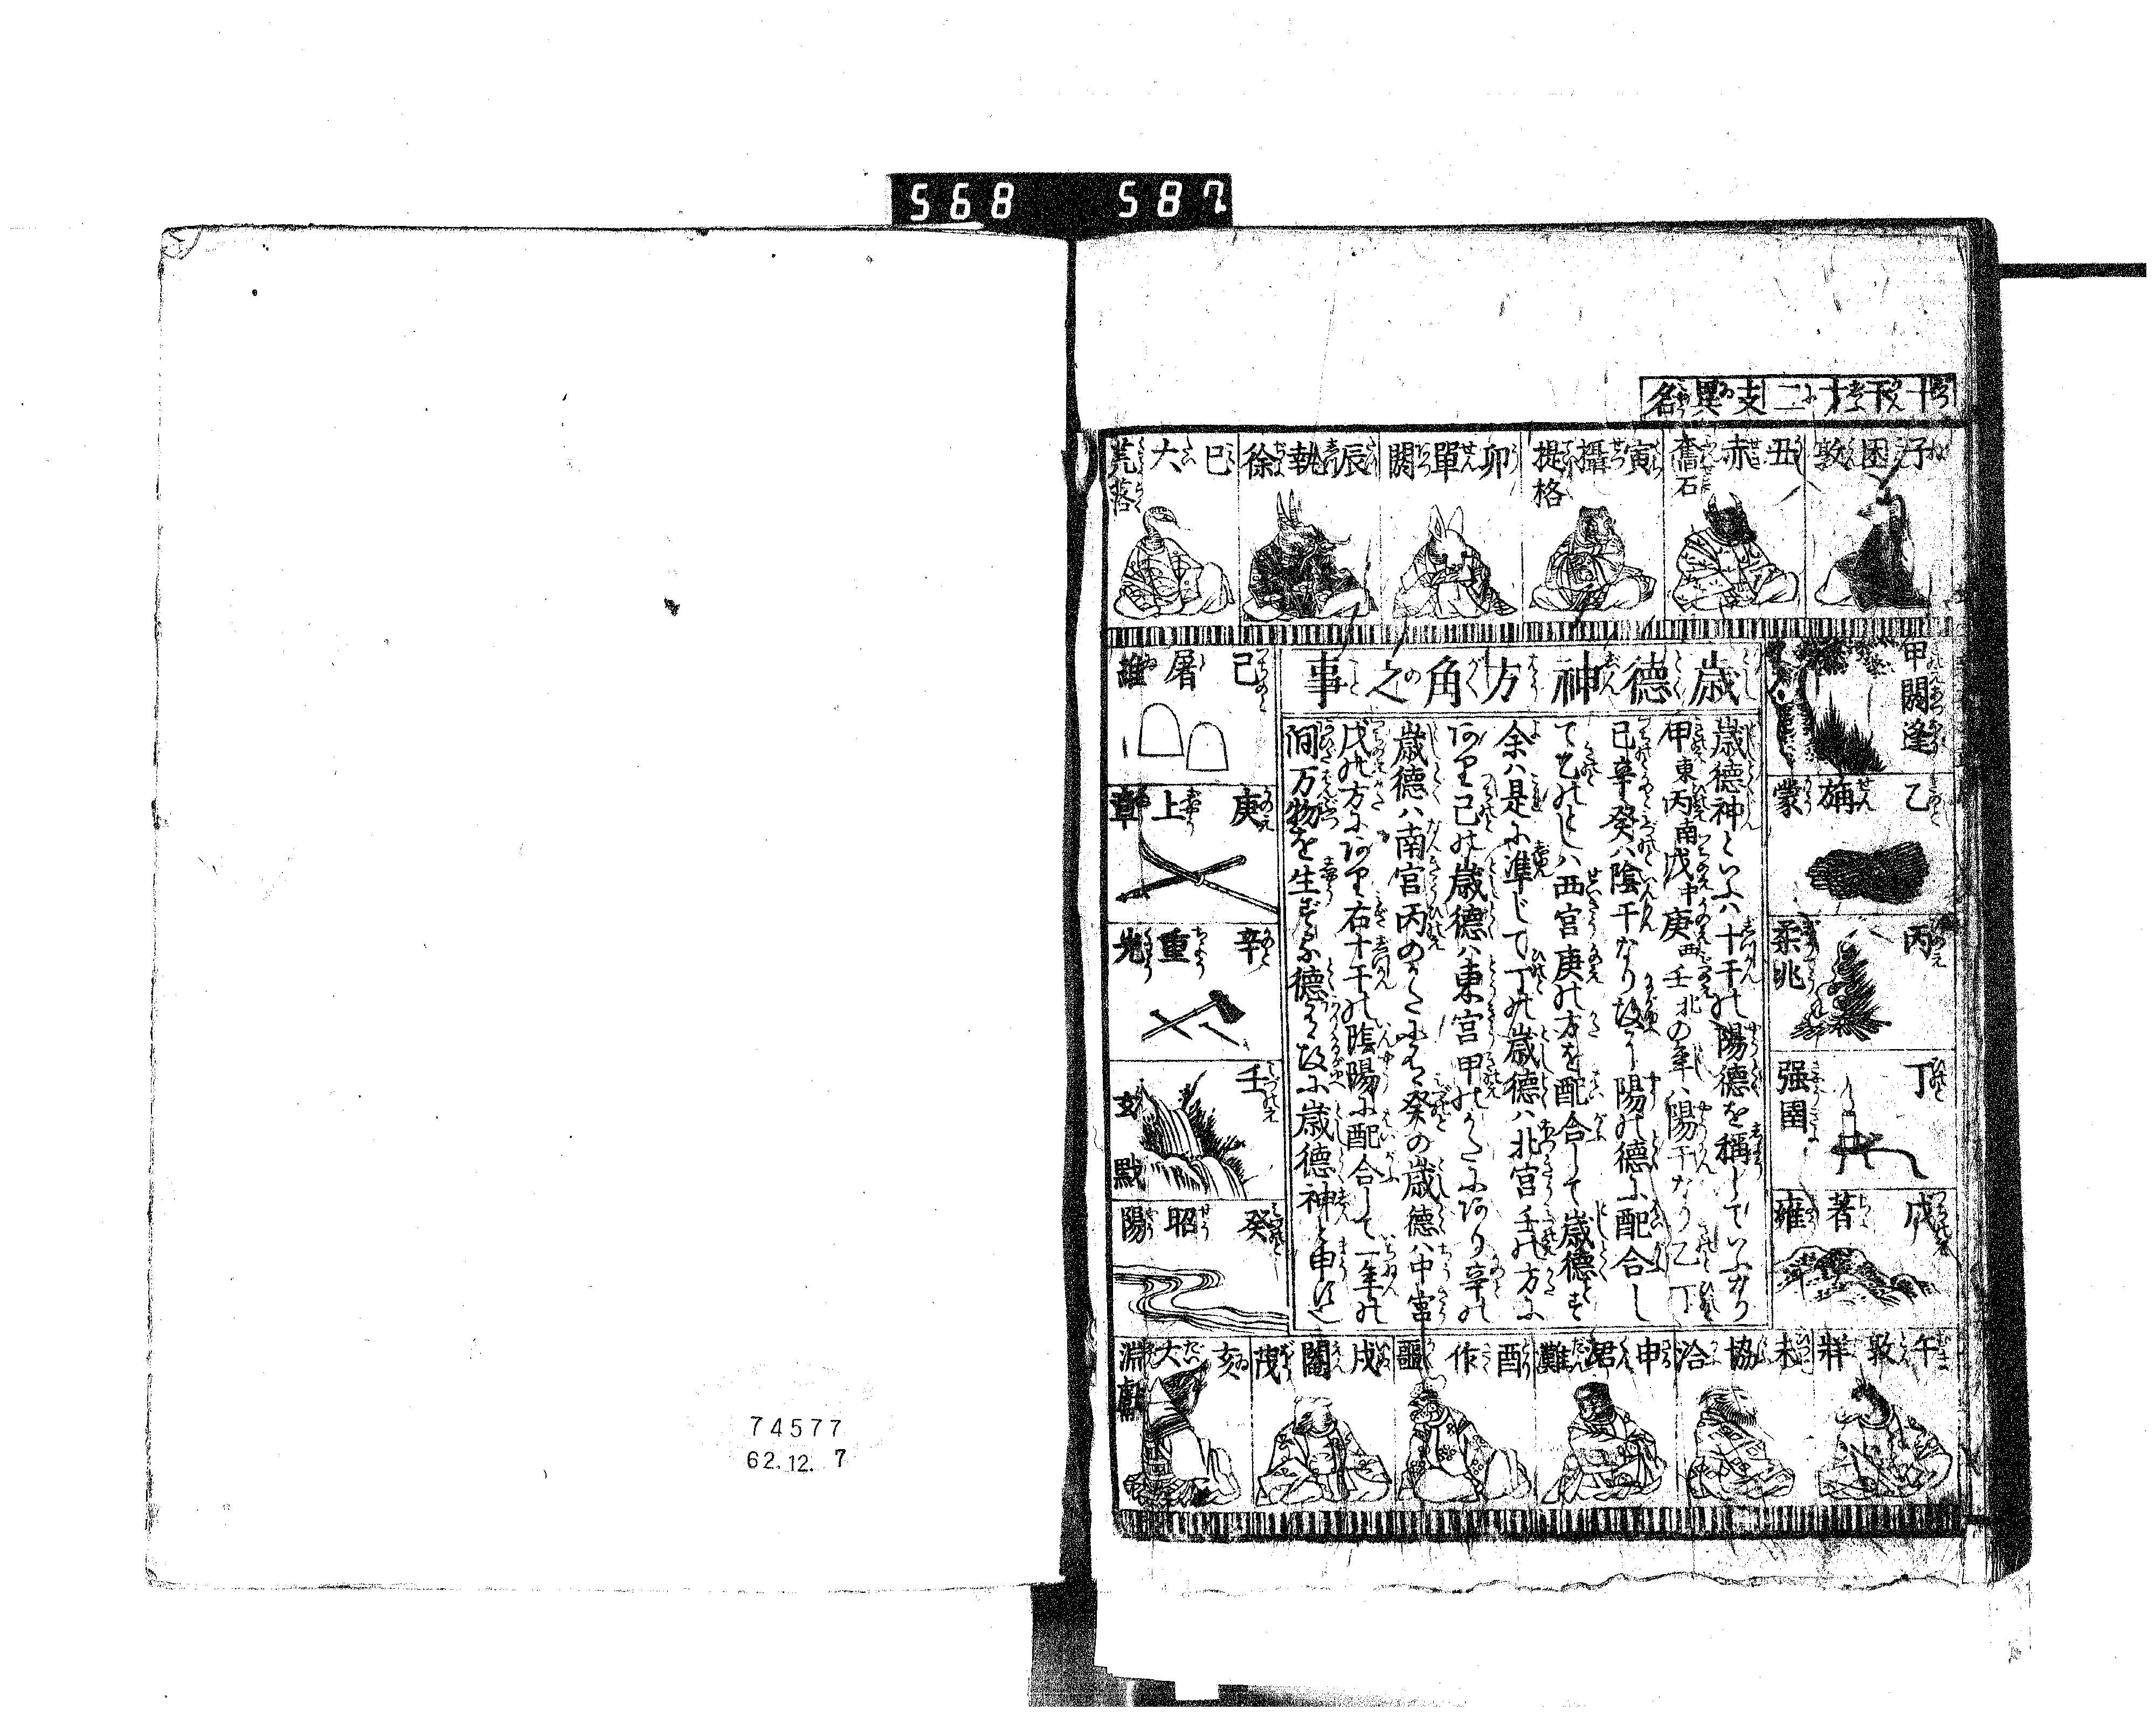 568 587
十干十二支異名
子 困敦
丑 赤奮若
寅 攝提格
卯 單閼
辰 執徐
巳 大荒落
甲 閼逢
乙 旃蒙
丙 柔兆
丁 强圉
戊 著雍
己 屠維
庚 上章
辛 重光
壬 玄黓
癸 昭陽
歳德神方角之事
歳德神といふハ十干の陽德を稱していふなり
甲東丙南戊中庚西壬北の年ハ陽干なり乙丁
己辛癸ハ陰干なり故に陽の德に配合し
て乙のとしハ西宮庚の方を配合して歳德とす
余ハ是に準じて丁の歳德ハ北宮壬の方に
あり己の歳德ハ東宮甲のかたにあり辛の
歳德ハ南宮丙のかたにあり癸の歳德ハ中宮
戊の方にあり右十干の陰陽に配合して一年の
間万物を生ずる德有故に歳德神と申す也
午 敦牂
未 協洽
申 涒灘
酉 作噩
戌 閹茂
亥 大淵獻
74577
62.12.7